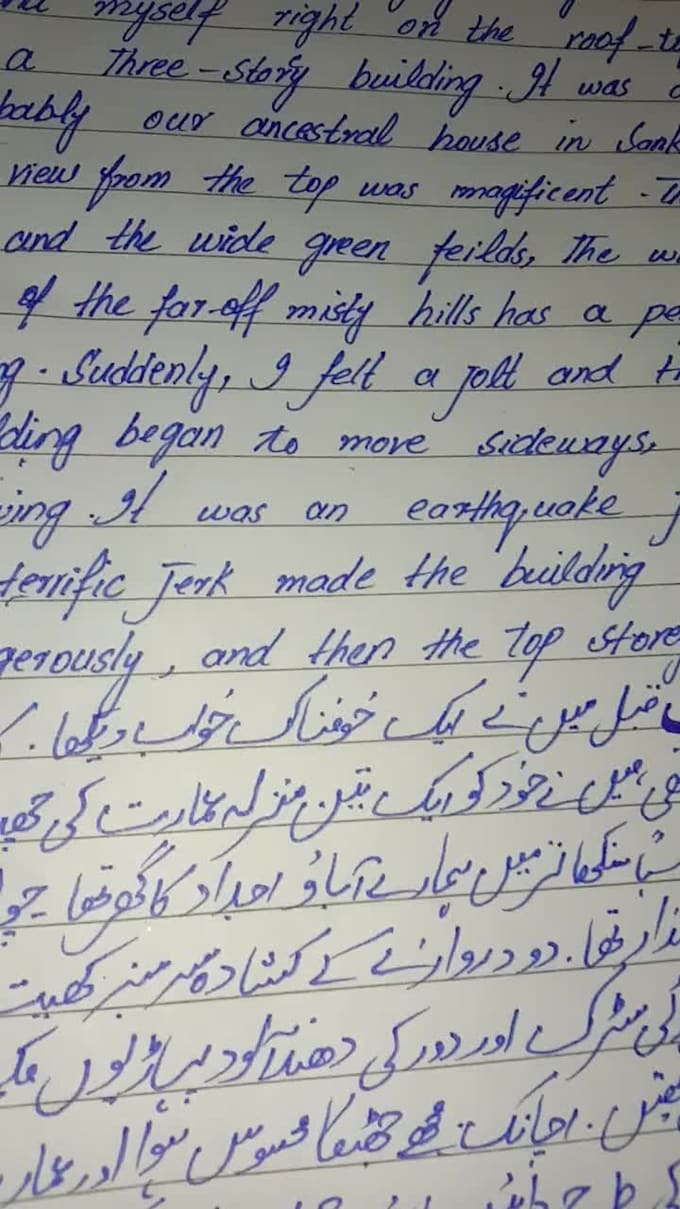 myself right on the roof-t
a Three-Story building. It was
bably our ancestral house in Sank
view from the top was magificent. Th
and the wide green feilds, The w
of the far-off misty hills has a pe
ng. Suddenly, I felt a jolt and th
lding began to move sideways,
ving. It was an earthquake
terrific Jerk made the building
gerously, and then the Top store
قبل میں نے ایک خوفناک خواب دیکھا۔
میں نے خود کو ایک تین منزلہ عمارت کی
میں ہمارے آباؤ اجداد کا گھر تھا۔ جو
تھا۔ دو دروازے کے کشادہ سر سبز کھیت
کی سڑک اور دور کی دھند آلود پہاڑیوں
اچانک مجھے جھٹکا محسوس ہوا اور عمار